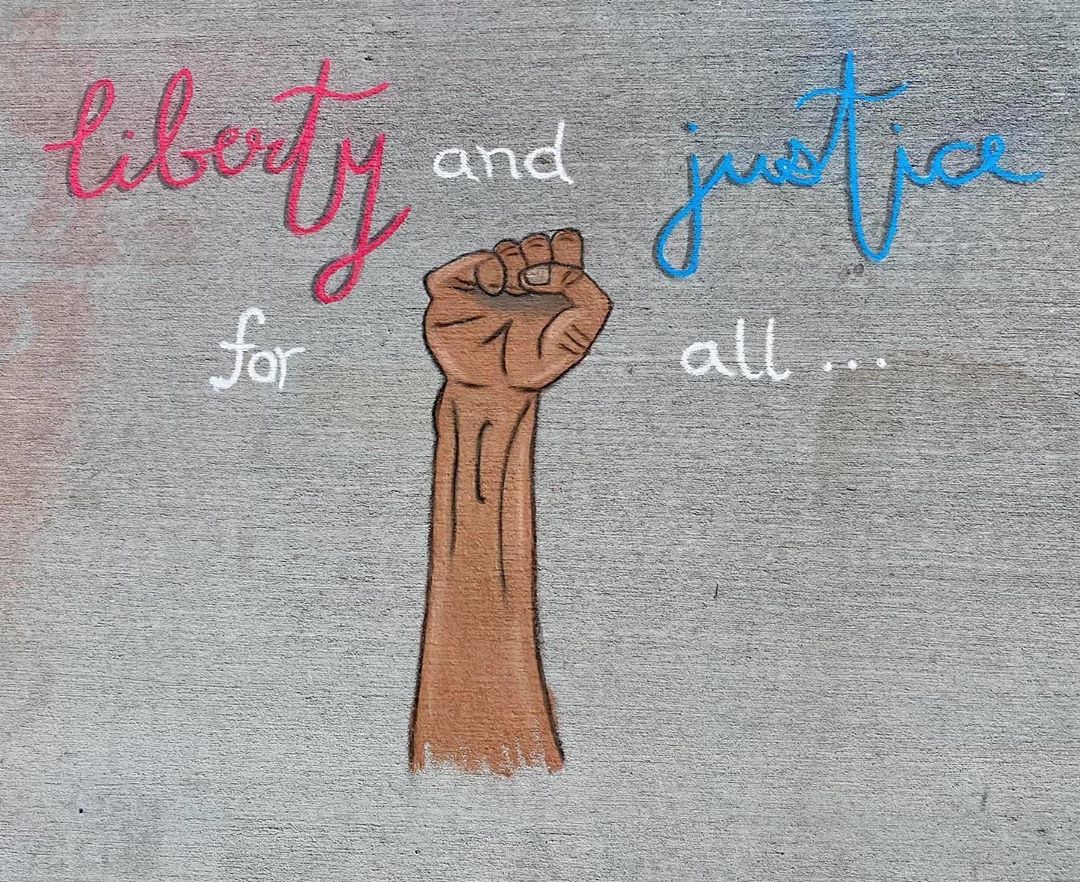 liberty and justice
for all ...